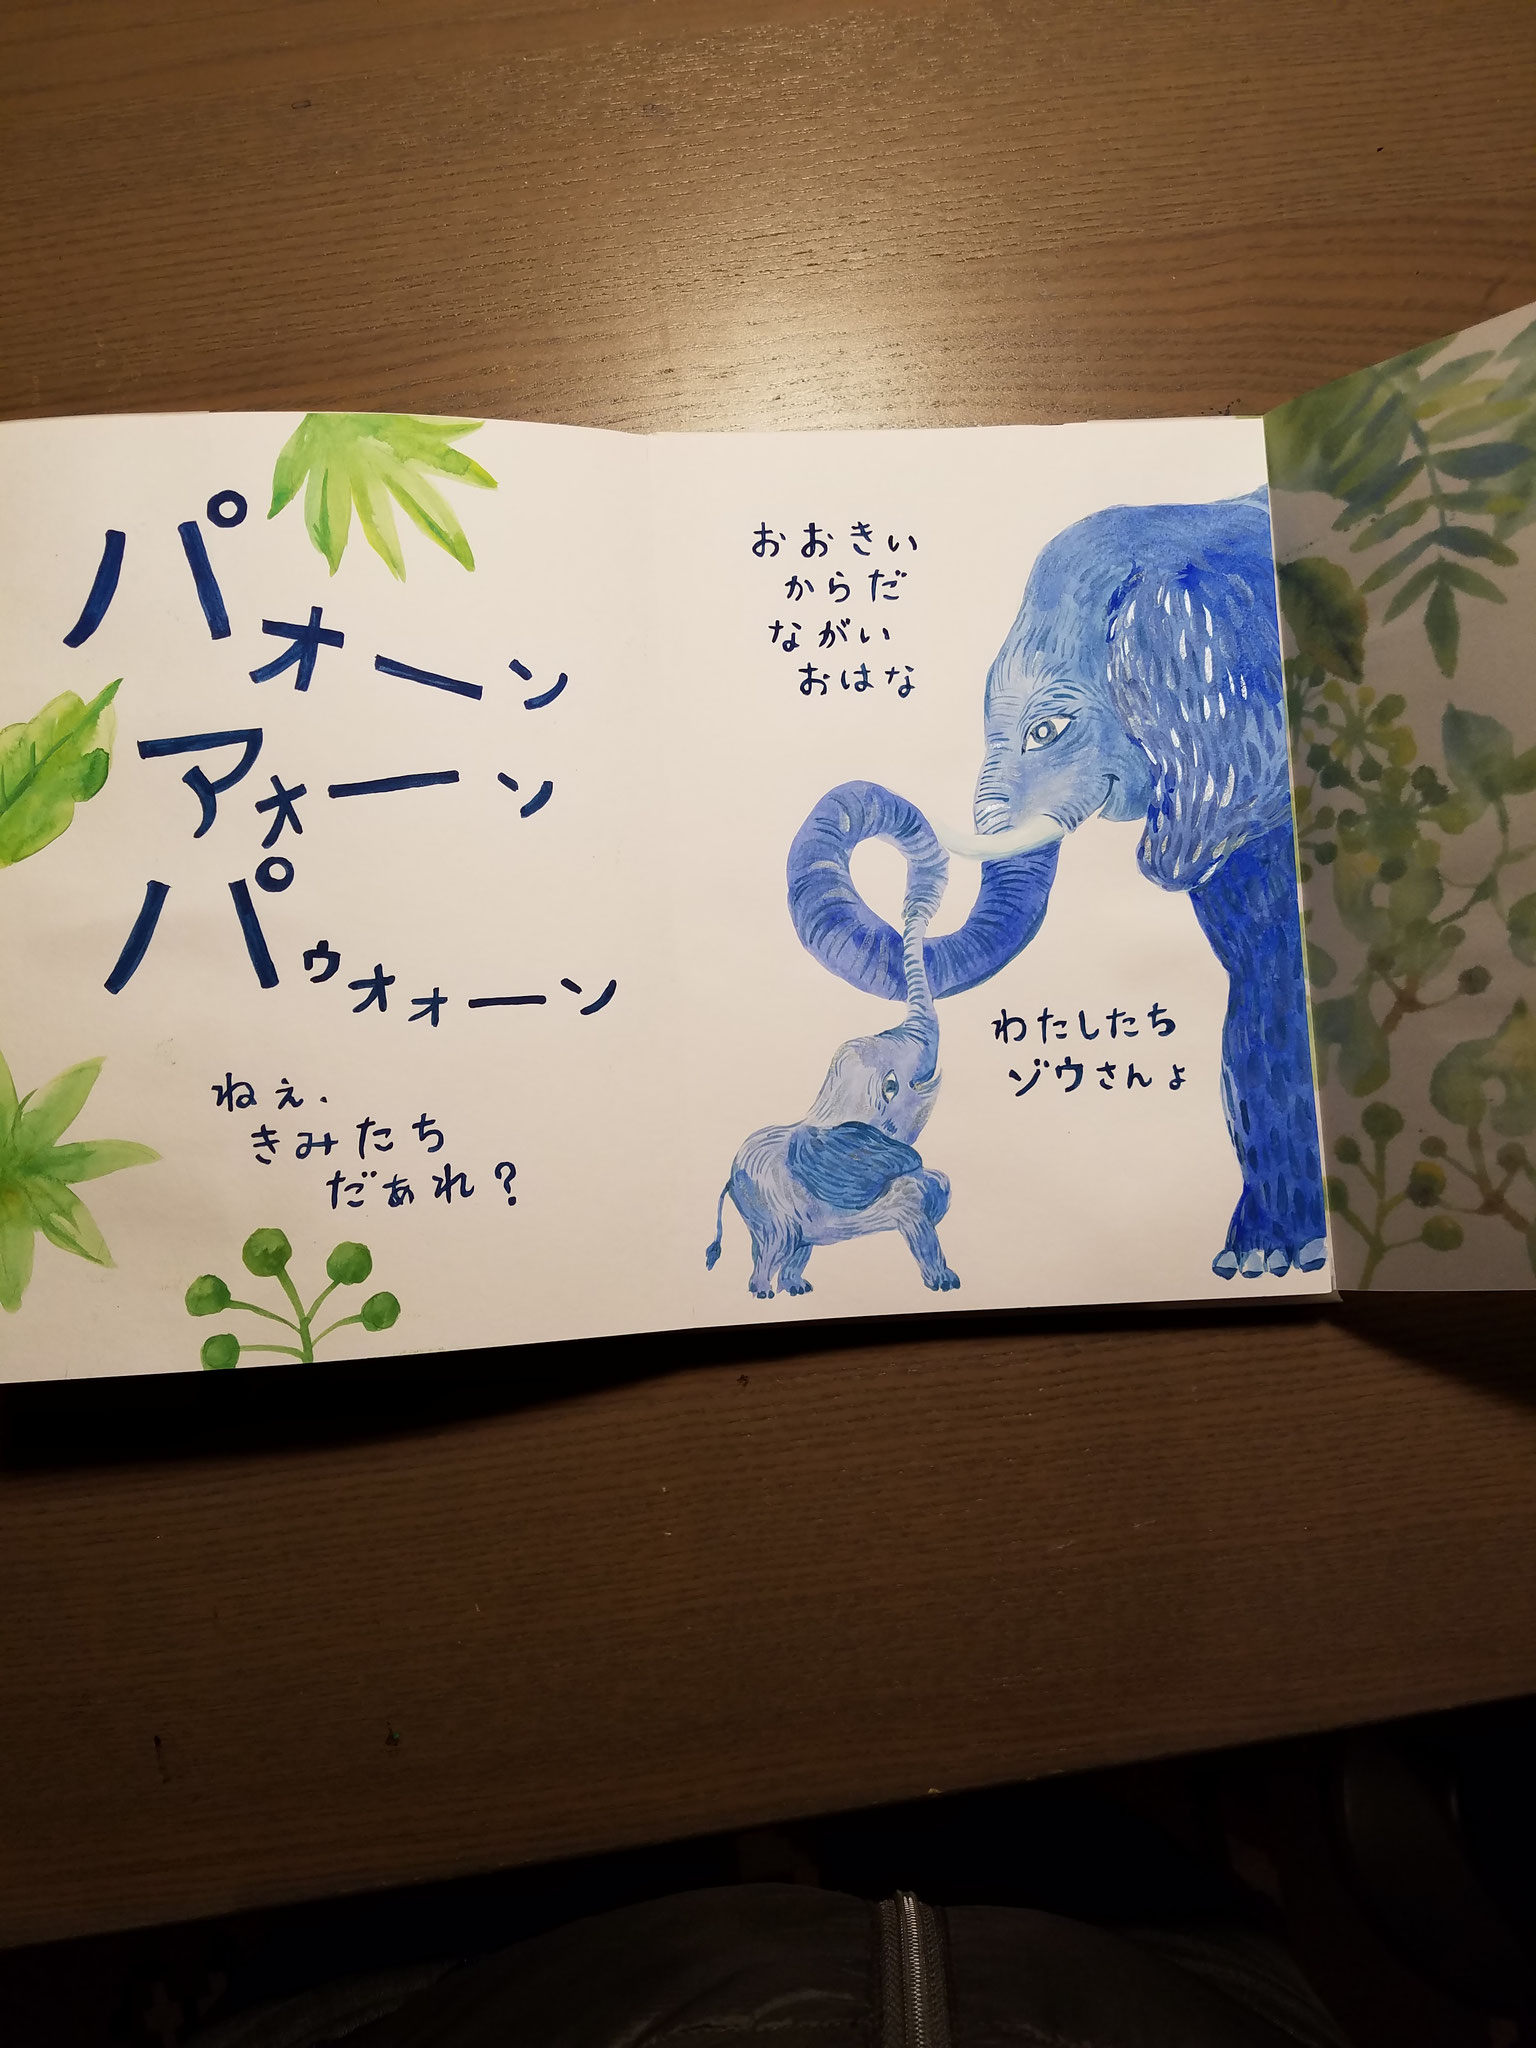 パォーン
アォーン
パゥォォーン
ねぇ、
きみたち
だぁれ？
おおきい
からだ
ながい
おはな
わたしたち
ゾウさんよ